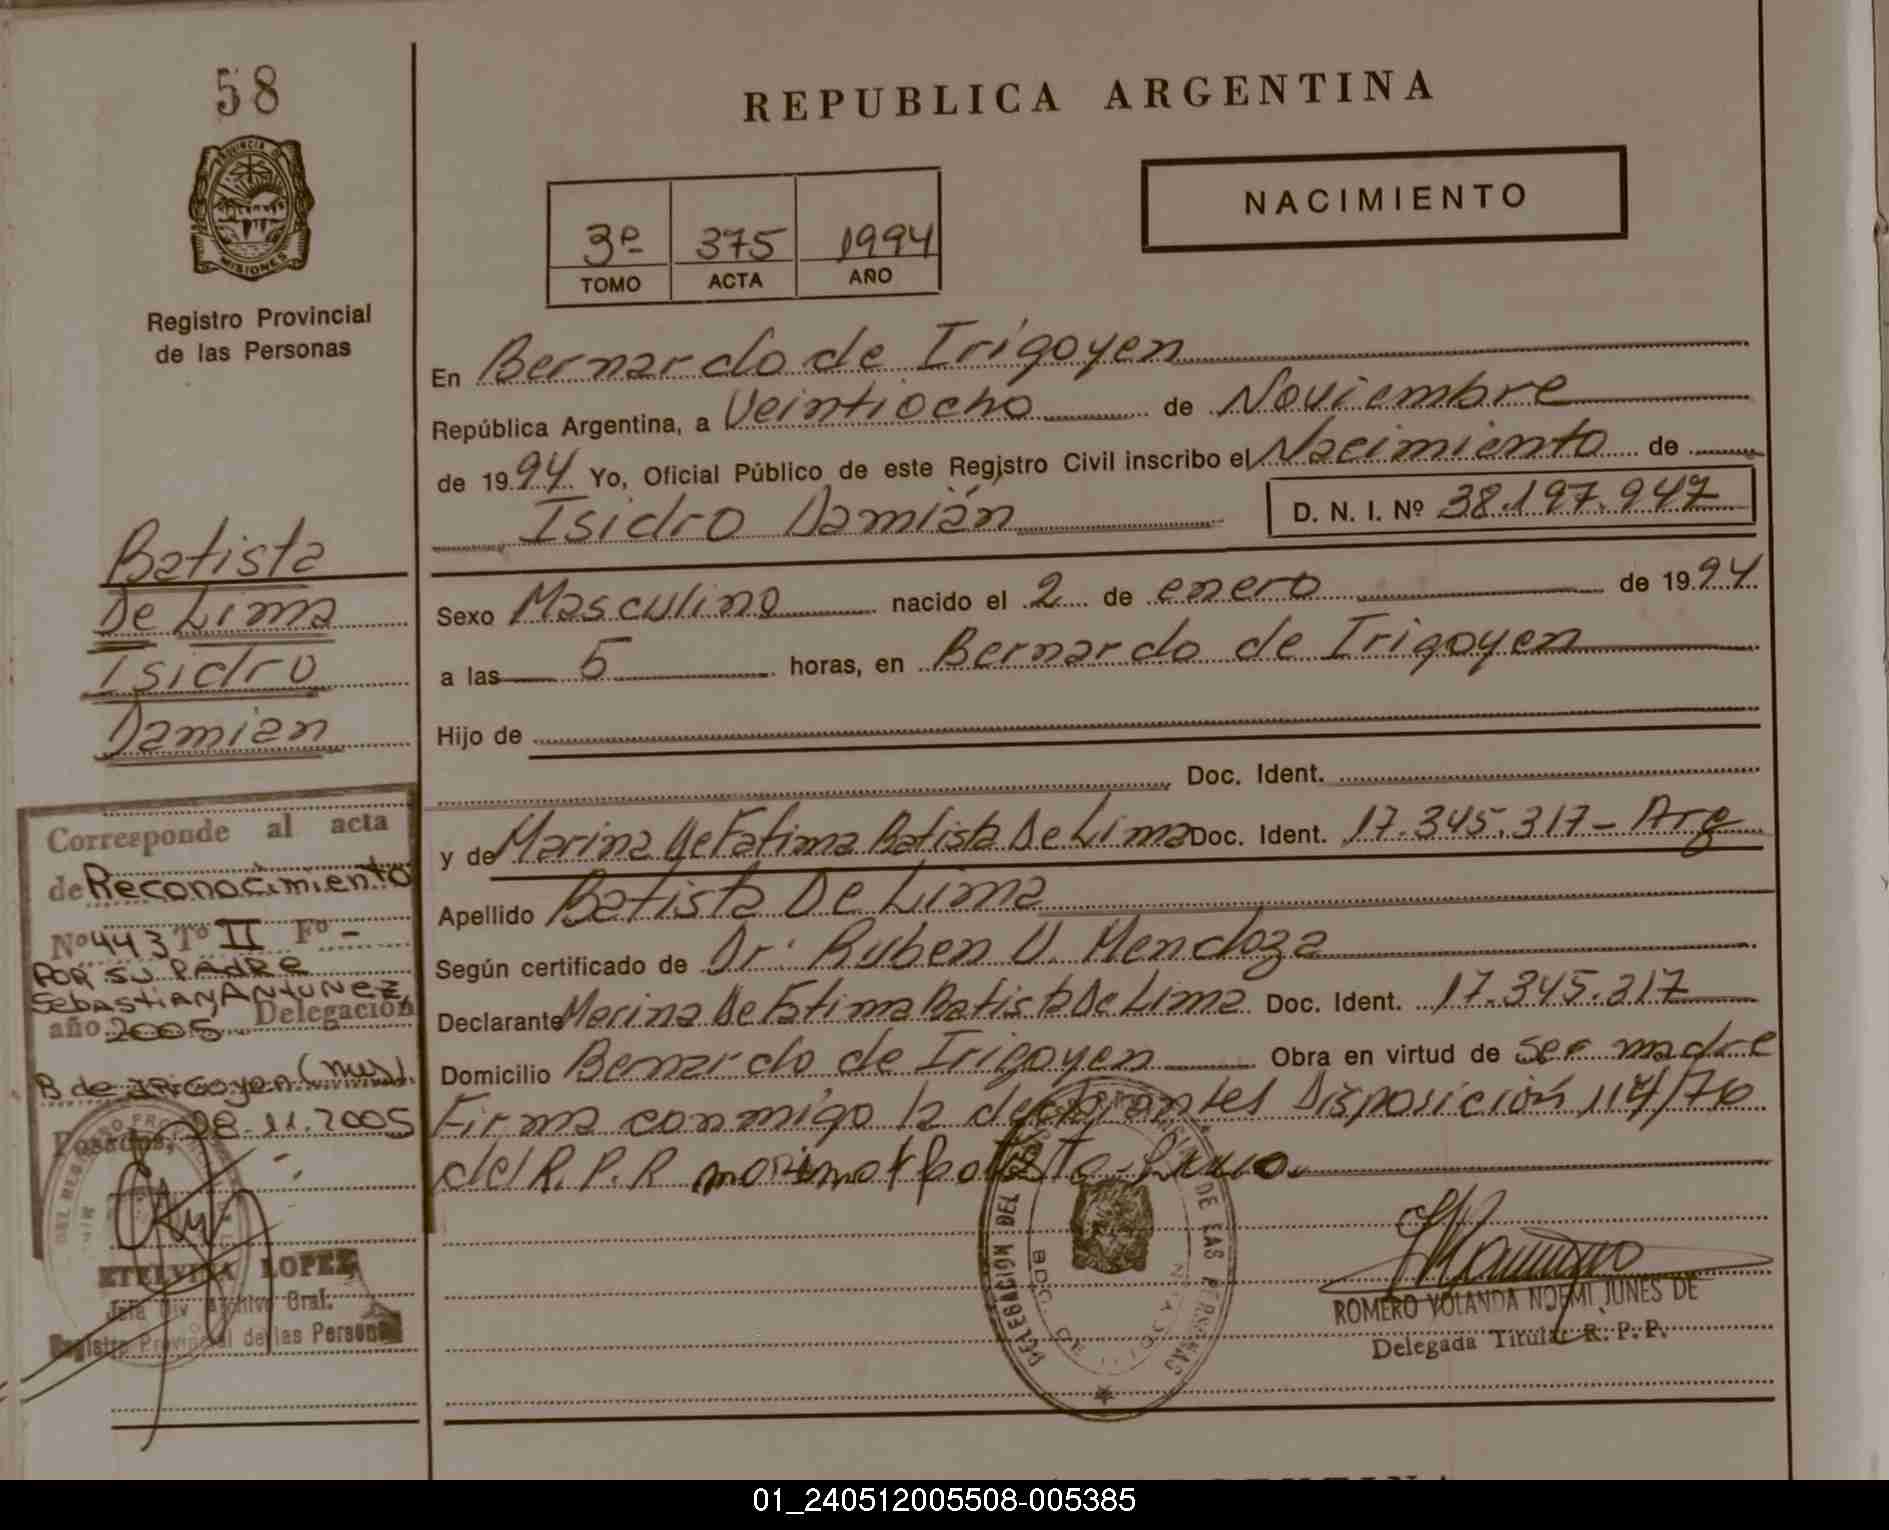 58
REPUBLICA ARGENTINA
PROVINCIA DE
MISIONES
Registro Provincial
de las Personas
NACIMIENTO
3º 375 1994
TOMO ACTA AÑO
En Bernardo de Irigoyen
República Argentina, a Veintiocho de Noviembre
de 1994 Yo, Oficial Público de este Registro Civil inscribo el Nacimiento de
Isidro Damián D. N. I. Nº 38.197.947
Sexo Masculino nacido el 2 de enero de 1994
a las 5 horas, en Bernardo de Irigoyen
Hijo de
Doc. Ident.
y de Marina De Fatima Batista De Lima Doc. Ident. 17.345.317 - Arg
Apellido Batista De Lima
Según certificado de Dr. Ruben V. Mendoza
Declarante Marina De Fatima Batista De Lima Doc. Ident. 17.345.317
Domicilio Bernardo de Irigoyen Obra en virtud de ser madre
Firma conmigo la declarante Disposición 114/76
del R.P.R
Batista
De Lima
Isidro
Damian
Corresponde al acta
de Reconocimiento
Nº 443 Tº II Fº -
POR SU PADRE
SEBASTIAN ANTUNEZ
año 2005 Delegación
B de IRIGOYEN (Mis)
Posadas, 28.11.2005
ETELVINA LOPEZ
Jefa Div Archivo Gral.
Registro Provincial de las Personas
DELEGACION DEL REGISTRO PROVINCIAL DE LAS PERSONAS
BDO. DE IRIGOYEN
ROMERO YOLANDA NOEMI JUNES DE
Delegada Titular R. P. P.
01_240512005508-005385